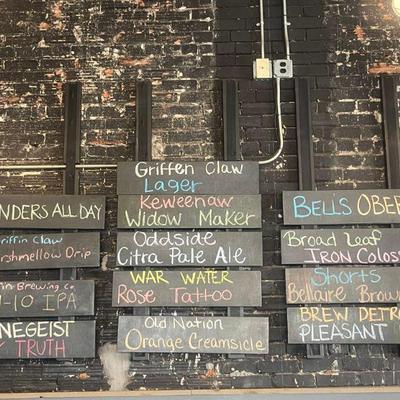 NDERS ALL DAY
riffin Claw
rshmellow Drip
in Brewing Co
-10 IPA
NEGEIST
TRUTH
Griffen Claw
Lager
Keweenaw
Widow Maker
Oddside
Citra Pale Ale
WAR WATER
Rose Tattoo
Old Nation
Orange Creamsicle
BELLS OBER
Broad Leaf
IRON COLOSS
Shorts
Bellaire Brow
BREW DETRO
PLEASANT